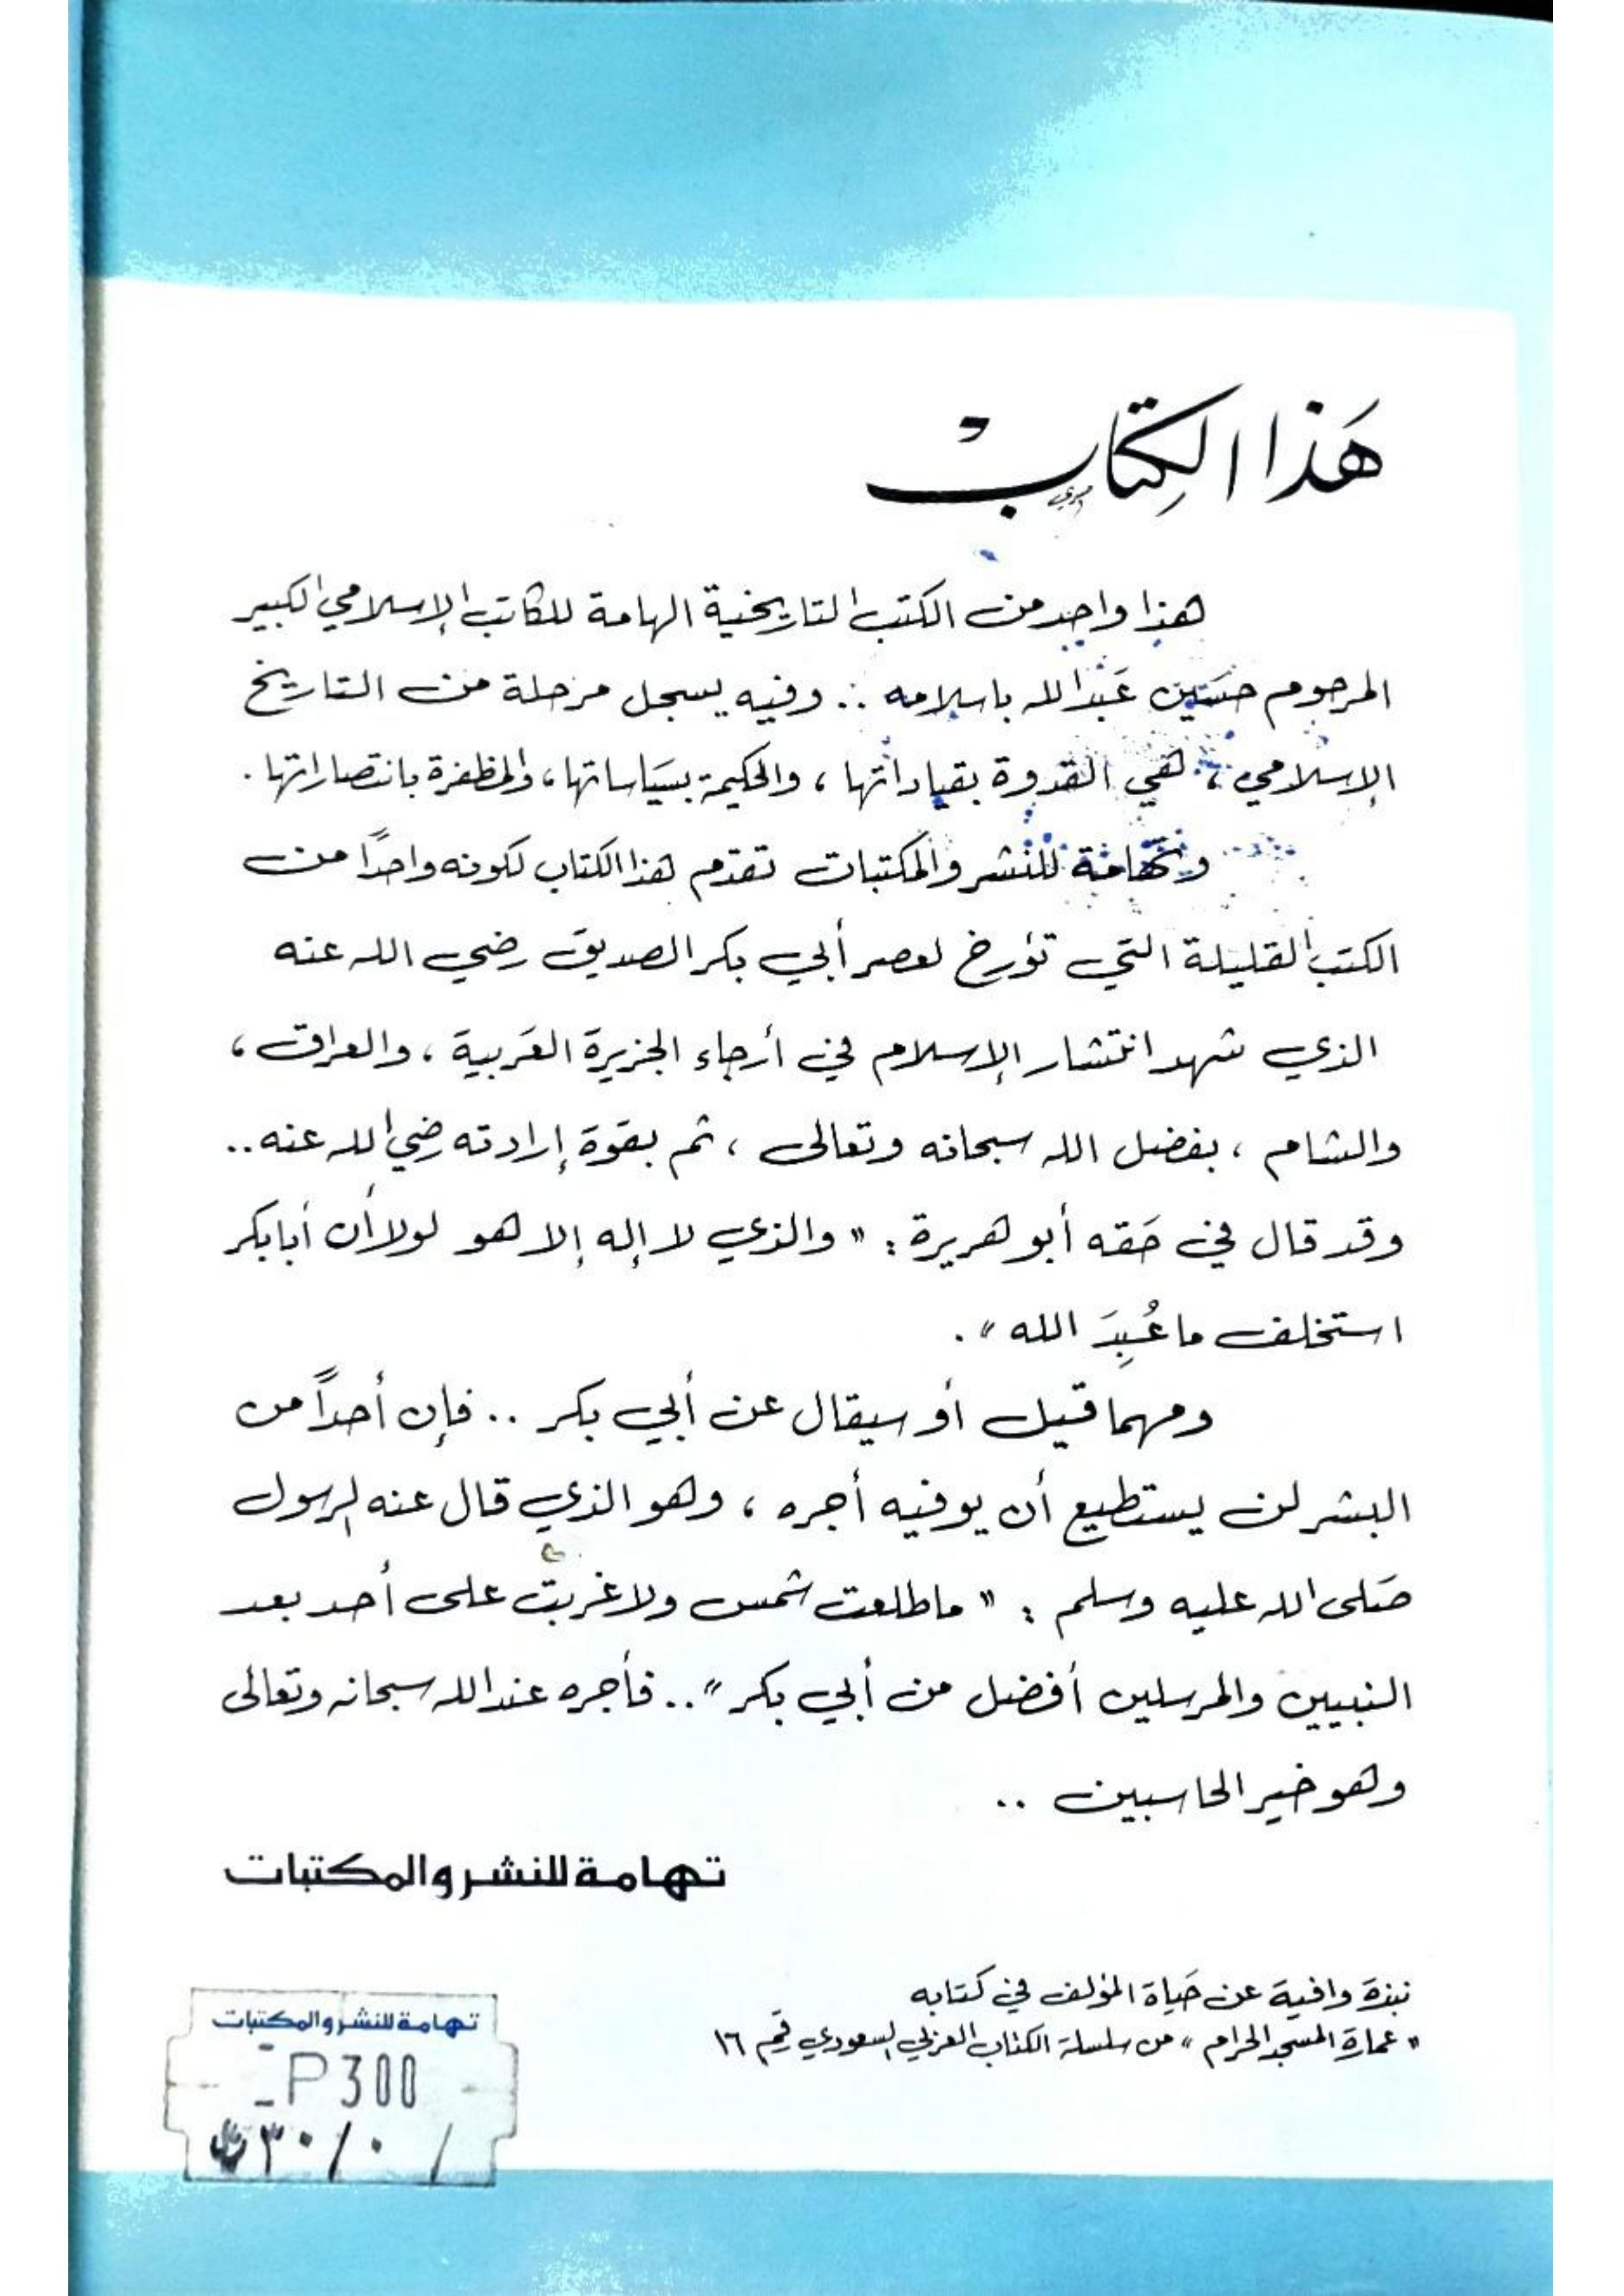 هَذَا الكِتَابْ
هذا واحد من الكتب التاريخية الهامة للكاتب الإسلامي الكبير
المرحوم حسَين عَبدالله باسلامه .. وفيه يسجل مرحلة من التاريخ
الإسلامي ، هي القدوة بقياداتها ، والحكيمة بسيَاساتها ، والمظفرة بانتصاراتها .
وتهَامَة للنشر والمكتبات تقدّم هذا الكتاب لكونه واحدًا من
الكتب القليلة التي تؤرخ لعصر أبي بكر الصديق رضي الله عنه
الذي شهد انتشار الإسلام في أرجاء الجزيرة العَربية ، والعراق ،
والشام ، بفضل الله سبحانه وتعالى ، ثم بقوة إرادته رضي الله عنه ..
وقد قال في حَقه أبو هريرة : " والذي لا إله إلا هو لولا أن أبابكر
استخلف ما عُبِدَ الله " .
ومهما قيل أو سيقال عن أبي بكر .. فإن أحداً من
البشر لن يستطيع أن يوفيه أجره ، وهو الذي قال عنه الرسول
صَلى الله عليه وسلم : " ما طلعت شمس ولا غربت على أحد بعد
النبيين والمرسلين أفضل من أبي بكر " .. فأجره عند الله سبحانه وتعالى
وهو خير الحاسبين ..
تهامة للنشر والمكتبات
نبذة وافية عن حَياة المؤلف في كتابه
" عمارة المسجد الحرام " من سلسلة الكتاب العربي السعودي رقم ١٦
تهامة للنشر والمكتبات
P300
٣٠/٠ /